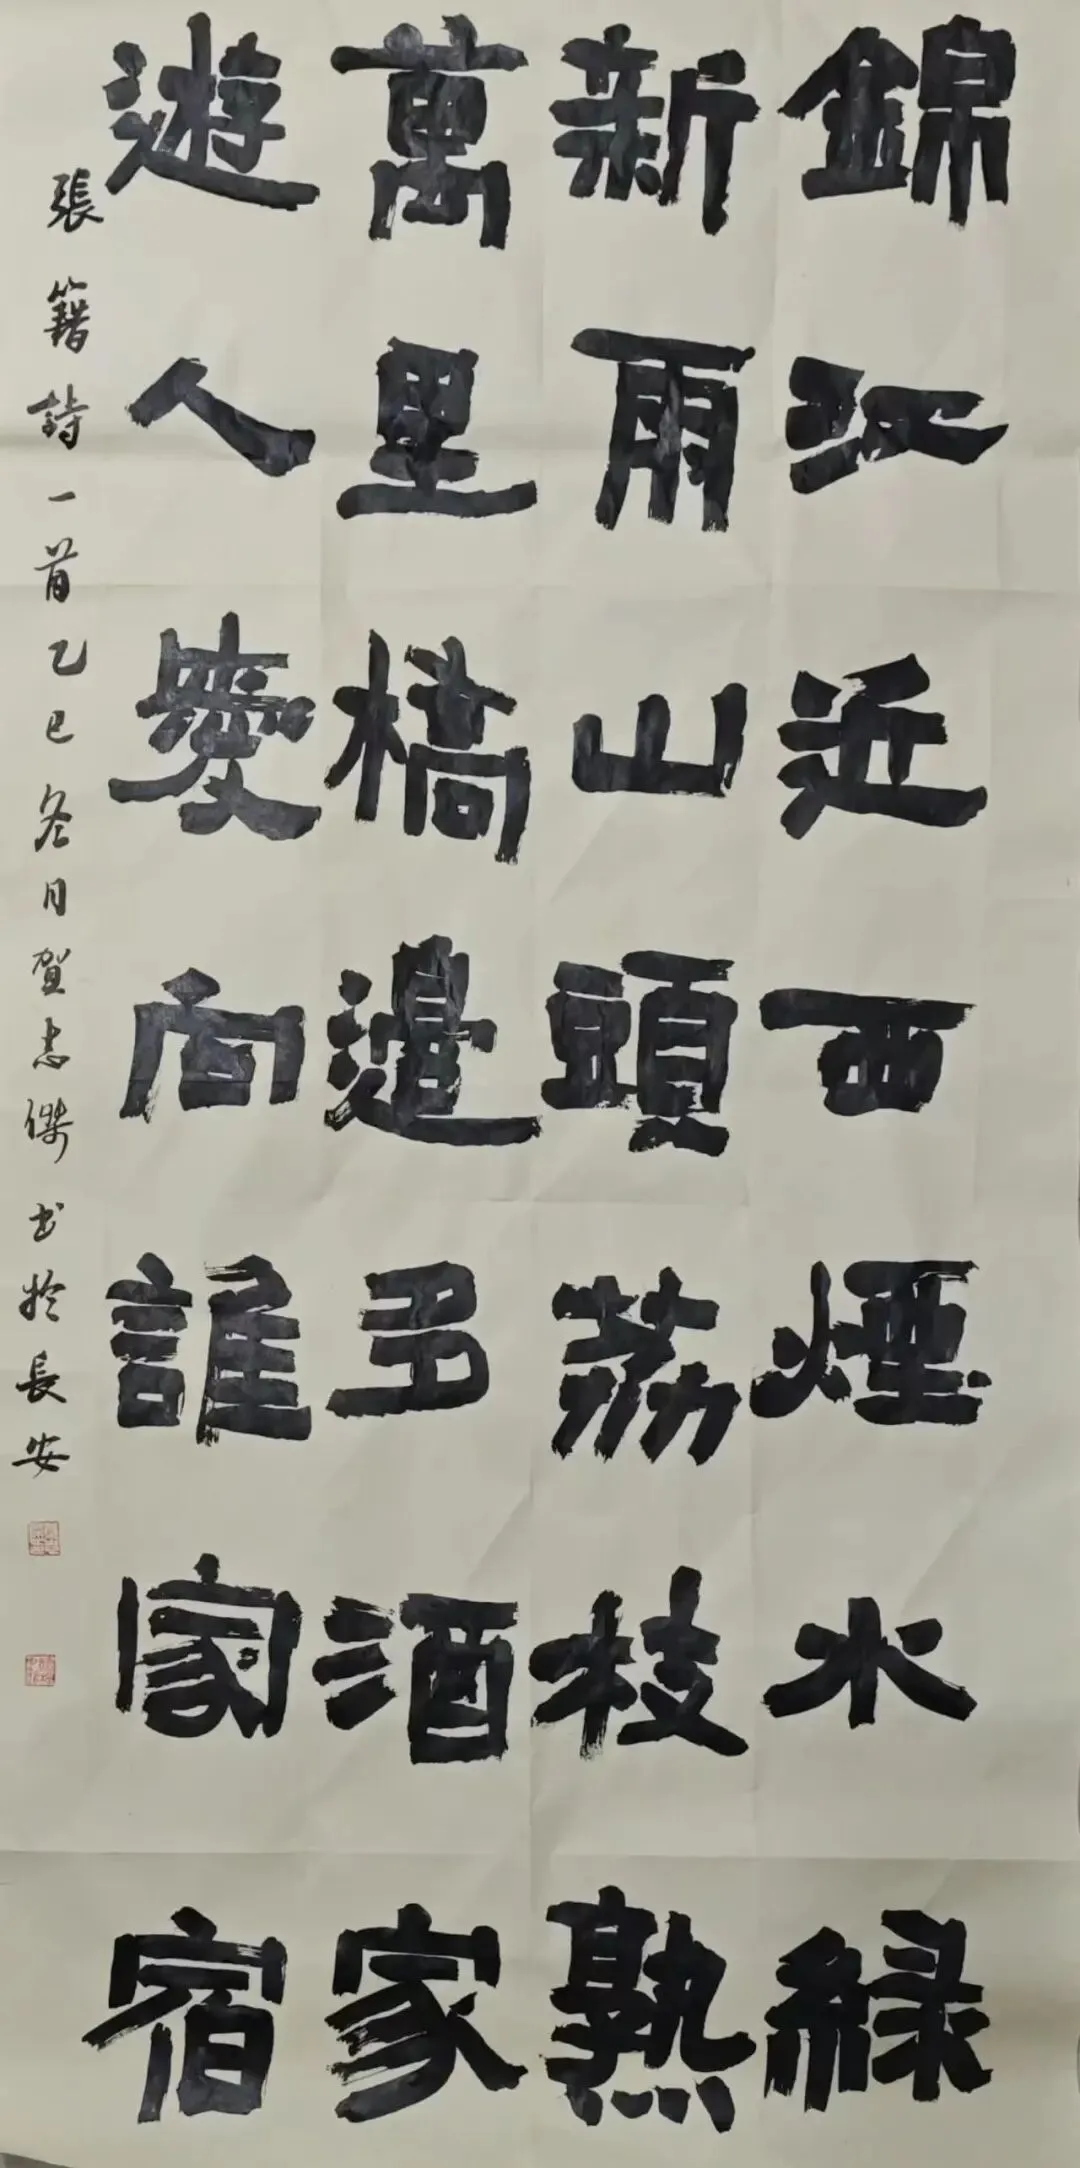 錦江近西煙水緑
新雨山頭荔枝熟
萬里橋邊多酒家
遊人愛向誰家宿
張籍詩一首乙巳冬月賀志傑书於長安